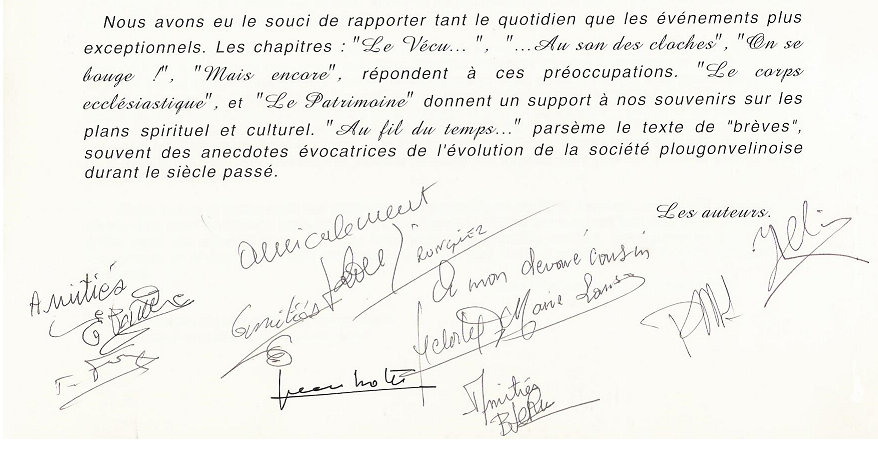 Nous avons eu le souci de rapporter tant le quotidien que les événements plus
exceptionnels. Les chapitres : "Le Vécu... ", "...Au son des cloches", "On se
bouge !", "Mais encore", répondent à ces préoccupations. "Le corps
ecclésiastique", et "Le Patrimoine" donnent un support à nos souvenirs sur les
plans spirituel et culturel. "Au fil du temps..." parsème le texte de "brèves",
souvent des anecdotes évocatrices de l'évolution de la société plougonvelinoise
durant le siècle passé.
Les auteurs.
amicalement
Amitiés
Amitiés
A mon dévoué cousin
Marie
Amitiés